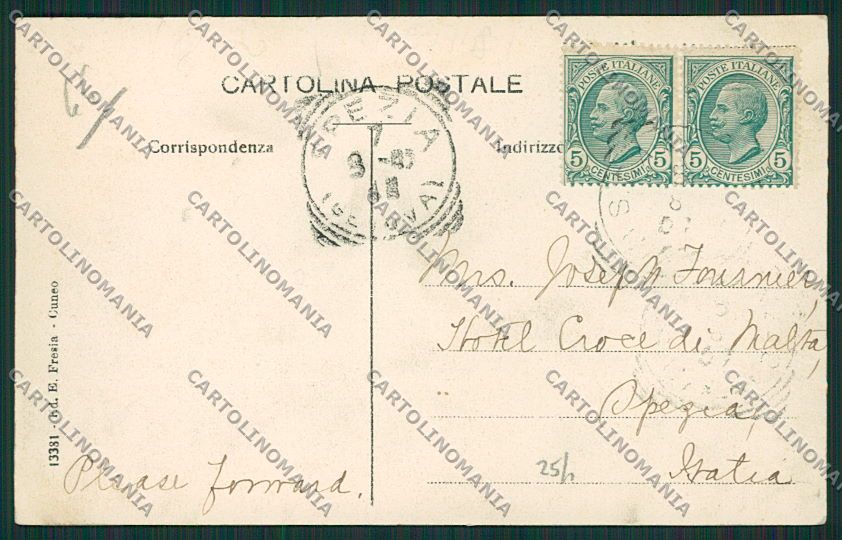 CARTOLINA POSTALE
Corrispondenza
Indirizzo
SPEZIA
(GENOVA)
POSTE ITALIANE
5 5
CENTESIMI
POSTE ITALIANE
5 5
CENTESIMI
Mrs. Joseph Fournier,
Hotel Croce di Malta,
Spezia,
Italia
Please forward.
25/
13381 - Ed. E. Fresia - Cuneo
CARTOLINOMANIA